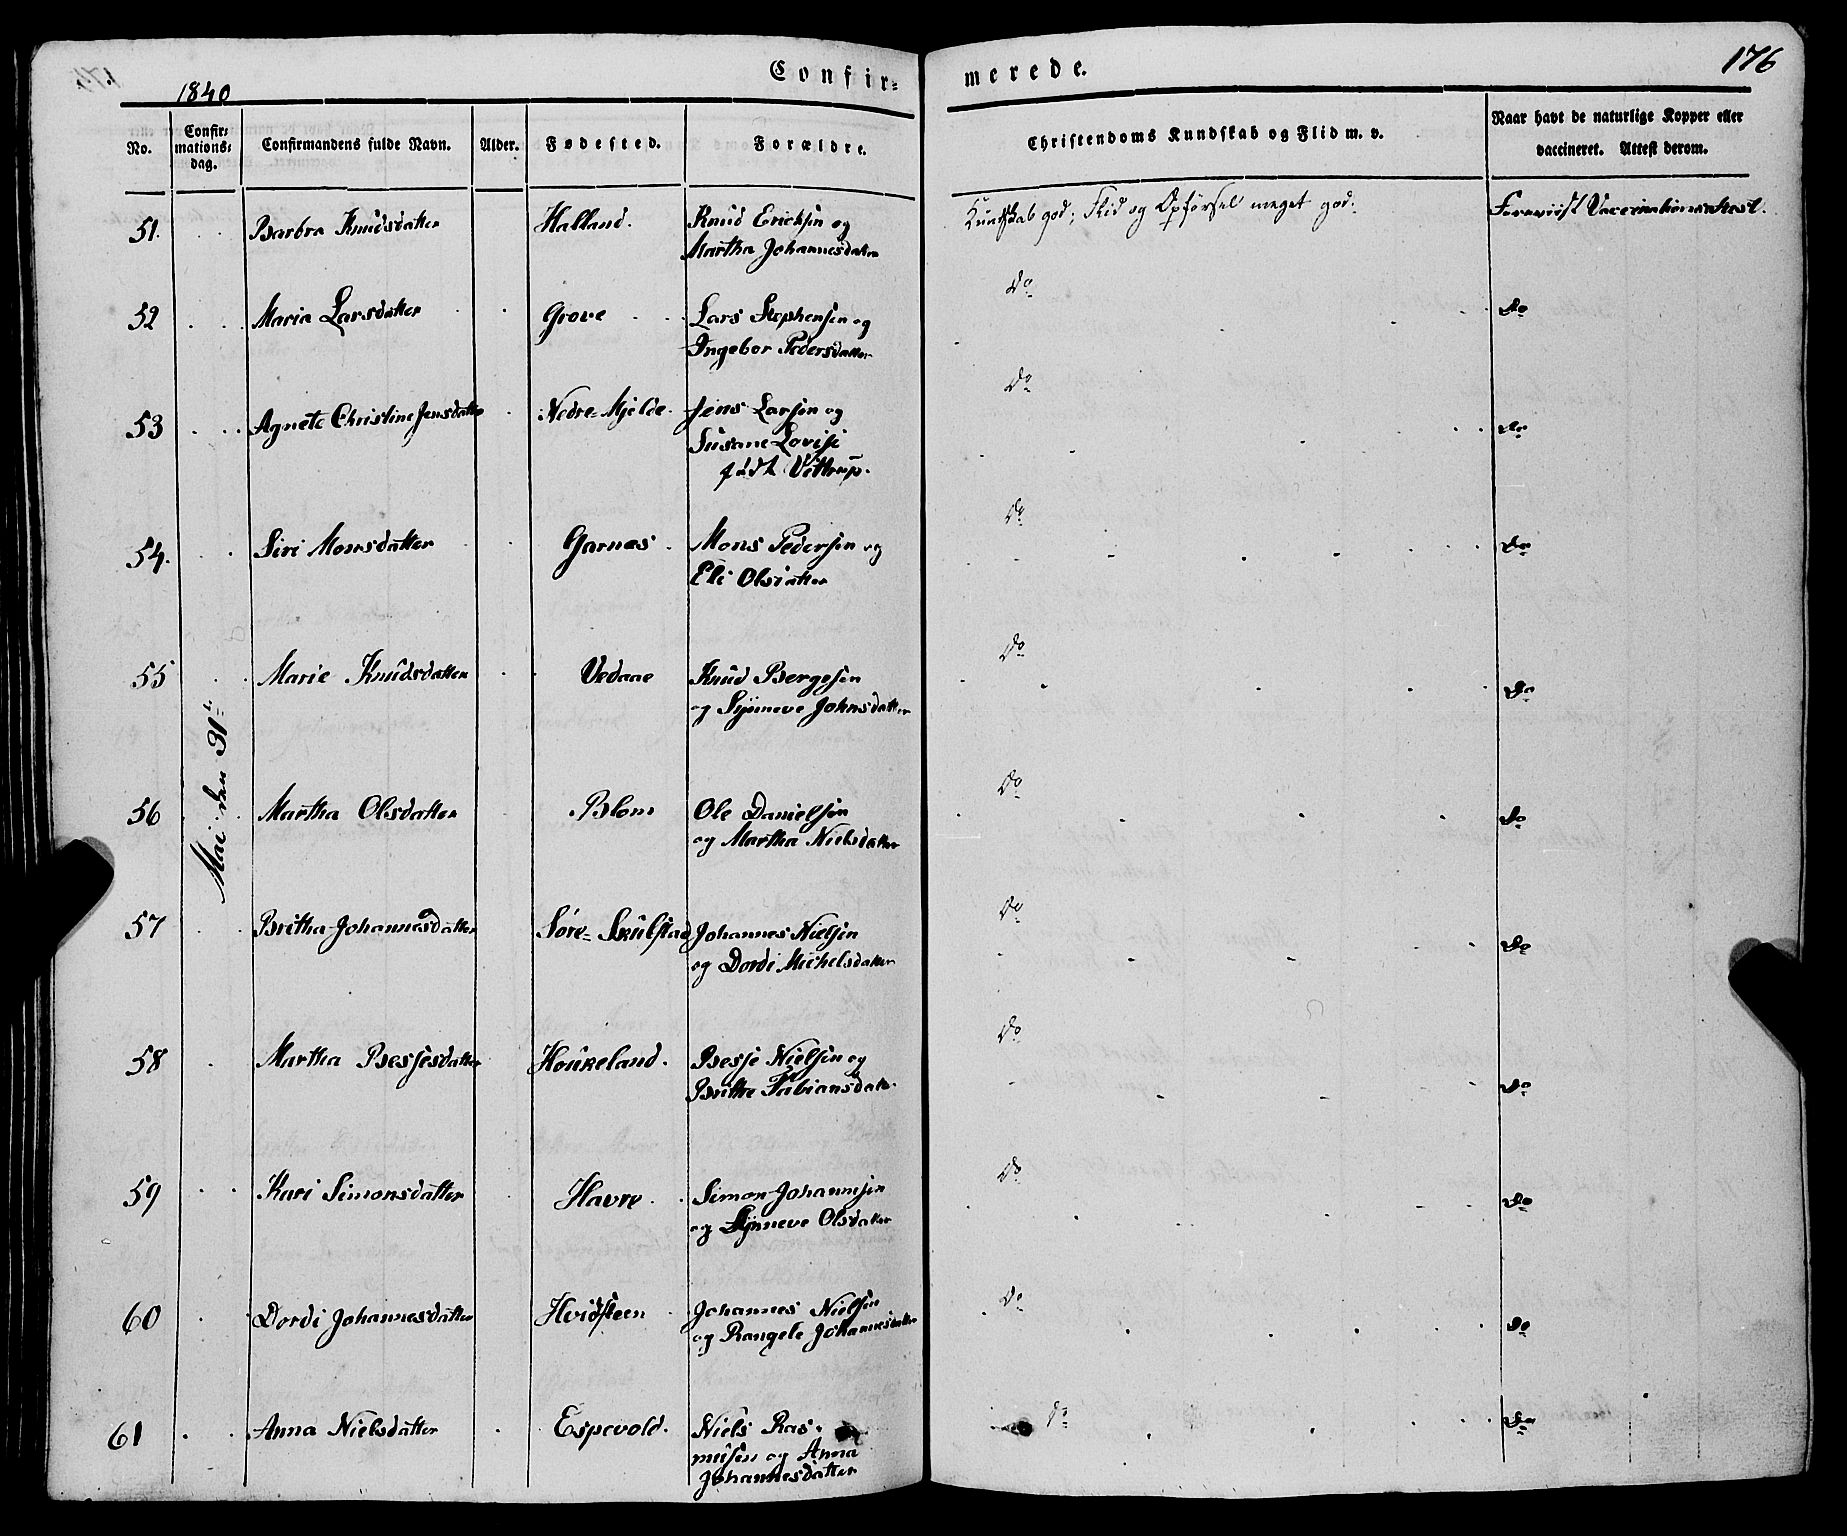 Confir=
merede.
176
1840
No.
Confir=
mations=
dag.
Confirmandens fulde Navn.
Alder.
Fødested.
Forældre.
Christendoms Kundskab og Flid m. v.
Naar havt de naturlige Kopper eller
vaccineret. Attest derom.
Mai den 31te
51. Barbra Knudsdatter Halland. Knud Ericksen og
Martha Johannesdatter
Kundskab god; Flid og Opførsel meget god.
Foreviist Vaccinationsattest.
52 Maria Larsdatter Grove Lars Stephensen og
Ingebor Pedersdatter
Do
Do
53 Agnete Christine Jensdatter Nedre=Mjelde. Jens Larsen og
Susane Lovise
født Vittrup.
Do
Do
54. Siri Monsdatter Garnæs Mons Pedersen og
Eli Olsdatter
Do
Do
55 Marie Knudsdatter Vedaae Knud Bergesen
og Synneve Johnsdatter
Do
Do
56 Martha Olsdatter Blom Ole Danielsen
og Martha Nielsdatter
Do
Do
57 Britha Johannesdatter Søre=Skulstad Johannes Nielsen
og Dordi Michelsdatter
Do
Do
58 Martha Bessesdatter Houkeland. Besse Nielsen og
Brithe Fabiansdatr
Do
Do
59 Kari Simonsdatter Havre Simon Johannsen
og Synneve Olsdatter
Do
Do
60 Dordi Johannesdatter Hvidsteen Johannes Nielsen
og Rangele Johannesdatter
Do
Do
61 Anna Nielsdatter Espevold. Niels Ras=
musen og Anna
Johannesdatter
Do
Do